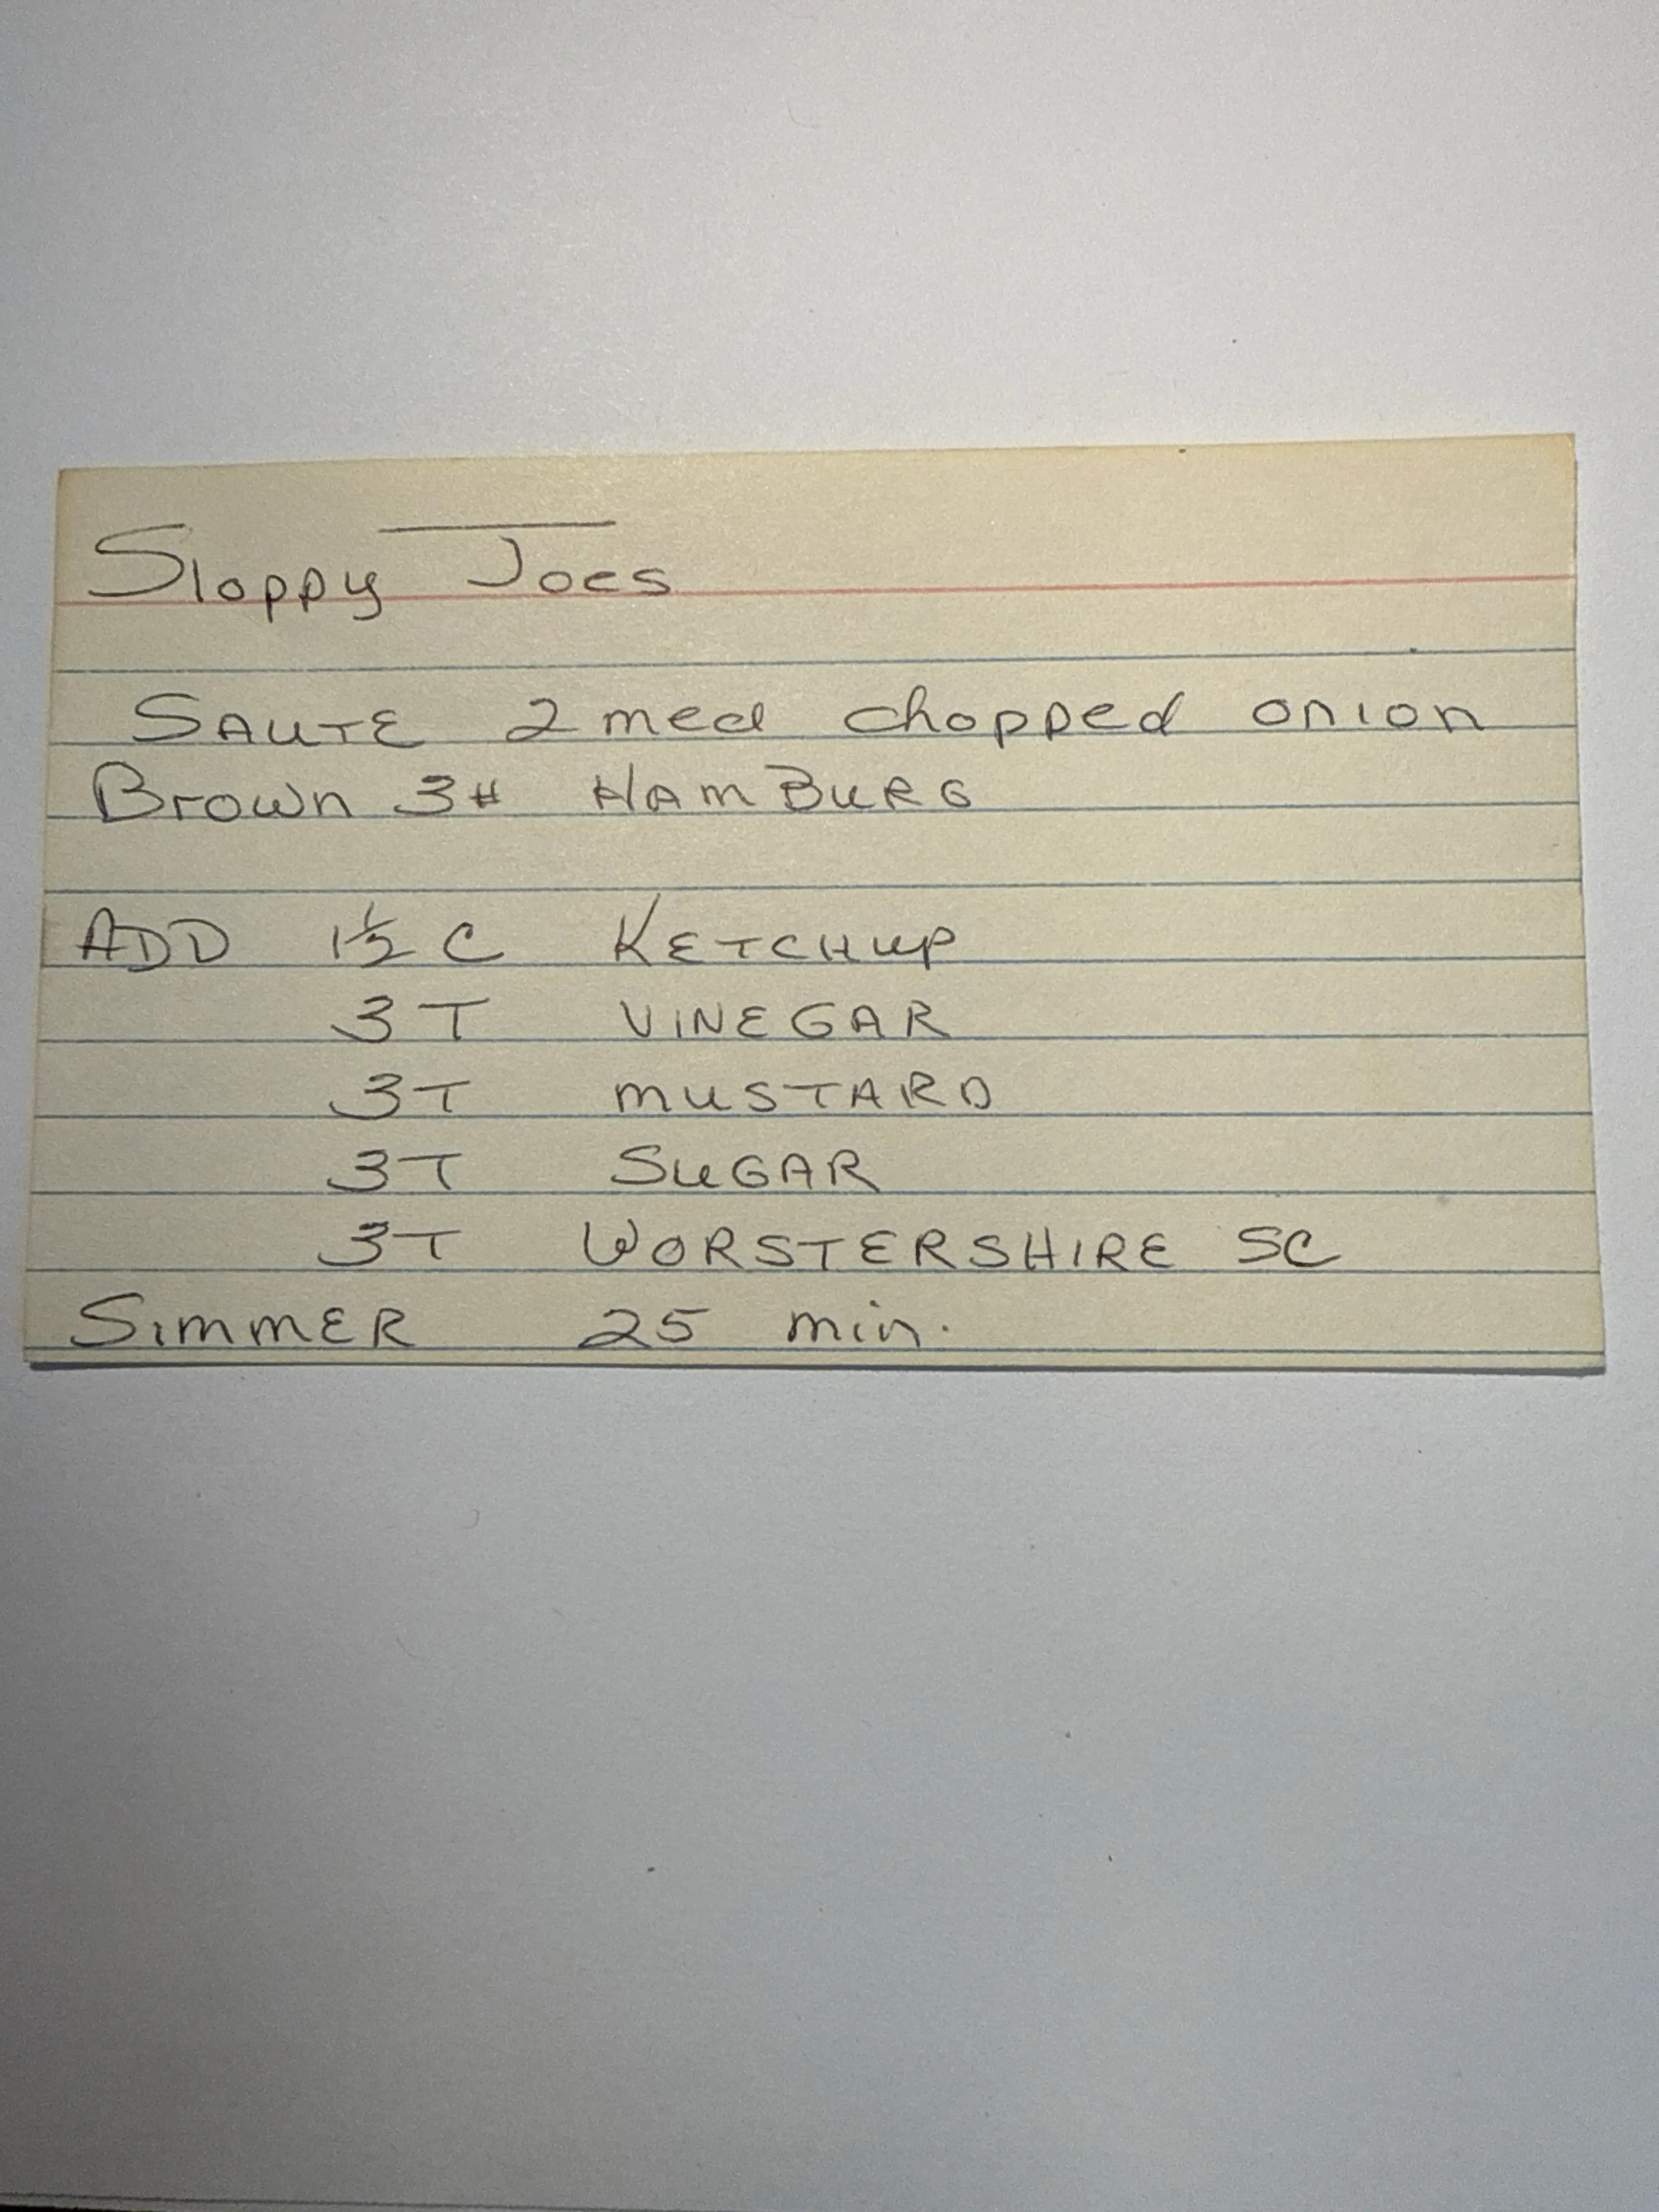 Sloppy Joes
SAUTE 2 med chopped onion
Brown 3# HAMBURG
ADD 1½ C KETCHUP
3 T VINEGAR
3 T MUSTARD
3 T SUGAR
3 T WORSTERSHIRE SC
SIMMER 25 min.